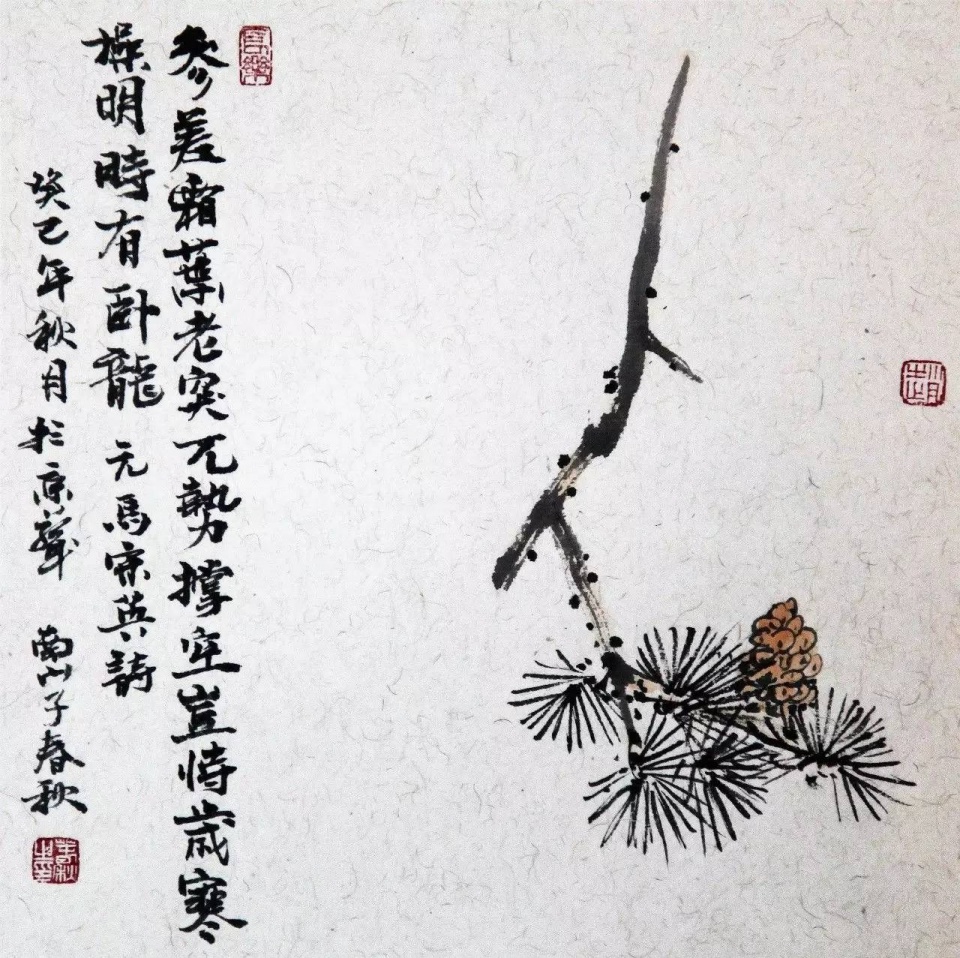 參差霜葉老突兀勢撐空豈恃歲寒
操明時有卧龍 元馬宗英詩
癸巳年秋月於京華 南山子春秋